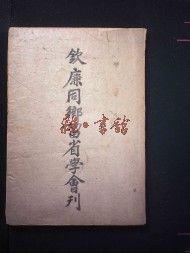 欽廉同鄉留省學會刊